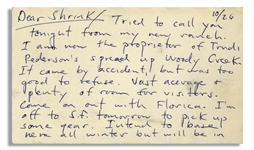 10/26
Dear Shrink/ Tried to call you
tonight from my new ranch.
I am now the proprietor of Trndl
Pederson's spread up Woody Creek.
It came by accident, but was too
good to refuse. Vast acreage &
plenty of room for visitors.
Come on out with Florica. I'm
off to S.F. tomorrow to pick up
some gear. Intend to base
here all winter but will be in